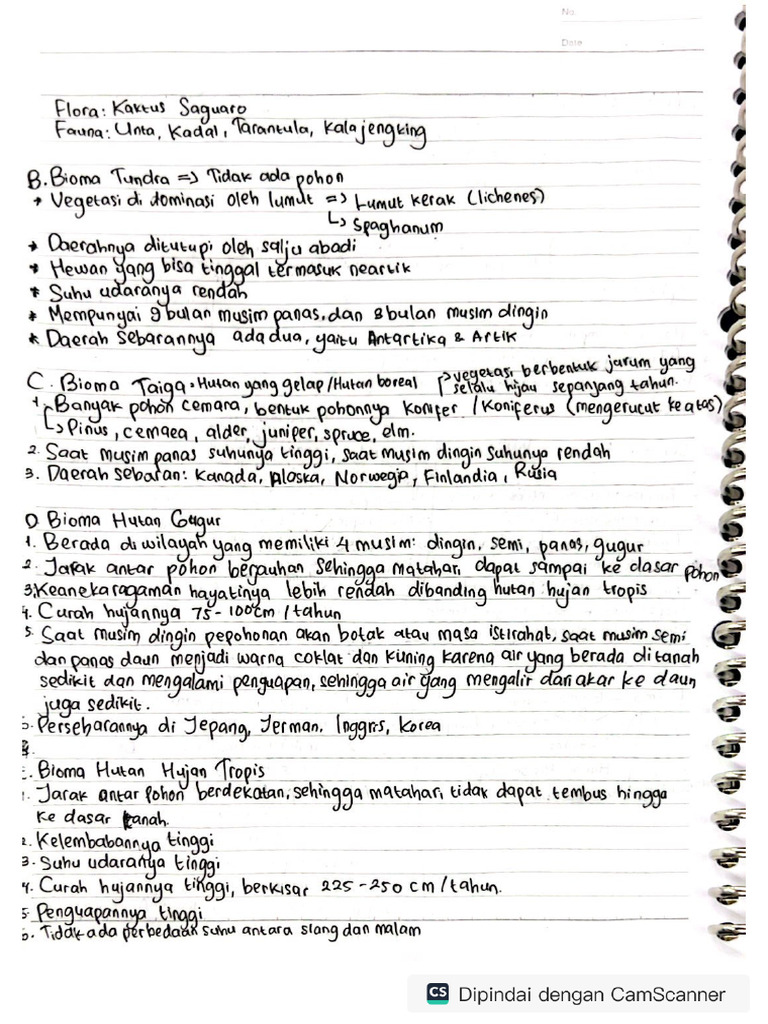 No
Date
Flora: Kaktus Saguaro
Fauna: Unta, Kadal, Tarantula, Kalajengking
B. Bioma Tundra => Tidak ada pohon
* Vegetasi di dominasi oleh lumut => Lumut kerak (lichenes)
↳ Spaghanum
* Daerahnya ditutupi oleh salju abadi
* Hewan yang bisa tinggal termasuk neartik
* Suhu udaranya rendah
* Mempunyai 9 bulan musim panas, dan 8 bulan musim dingin
* Daerah sebarannya ada dua, yaitu Antartika & Artik
C. Bioma Taiga = Hutan yang gelap/Hutan boreal
vegetasi berbentuk jarum yang
selalu hijau sepanjang tahun.
1. Banyak pohon cemara, bentuk pohonnya konifer / Koniferus (mengerucut ke atas)
↳ Pinus, cemaea, alder, juniper, spruce, elm.
2. Saat musim panas suhunya tinggi, saat musim dingin suhunya rendah
3. Daerah sebaran: Kanada, Alaska, Norwegia, Finlandia, Rusia
D. Bioma Hutan Gugur
1. Berada di wilayah yang memiliki 4 musim: dingin, semi, panas, gugur
2. Jarak antar pohon berjauhan sehingga matahari dapat sampai ke dasar pohon
3. Keanekaragaman hayatinya lebih rendah dibanding hutan hujan tropis
4. Curah hujannya 75-100cm/tahun
5. Saat musim dingin pepohonan akan botak atau masa istirahat, saat musim semi
dan panas daun menjadi warna coklat dan kuning karena air yang berada di tanah
sedikit dan mengalami penguapan, sehingga air yang mengalir dari akar ke daun
juga sedikit.
Persebarannya di Jepang, Jerman, Inggris, Korea
Bioma Hutan Hujan Tropis
1. Jarak antar pohon berdekatan, sehingga matahari tidak dapat tembus hingga
ke dasar tanah.
2. Kelembabannya tinggi
3. Suhu udaranya tinggi
4. Curah hujannya tinggi, berkisar 225-250 cm/tahun.
5. Penguapannya tinggi
6. Tidak ada perbedaan suhu antara siang dan malam
CS Dipindai dengan CamScanner